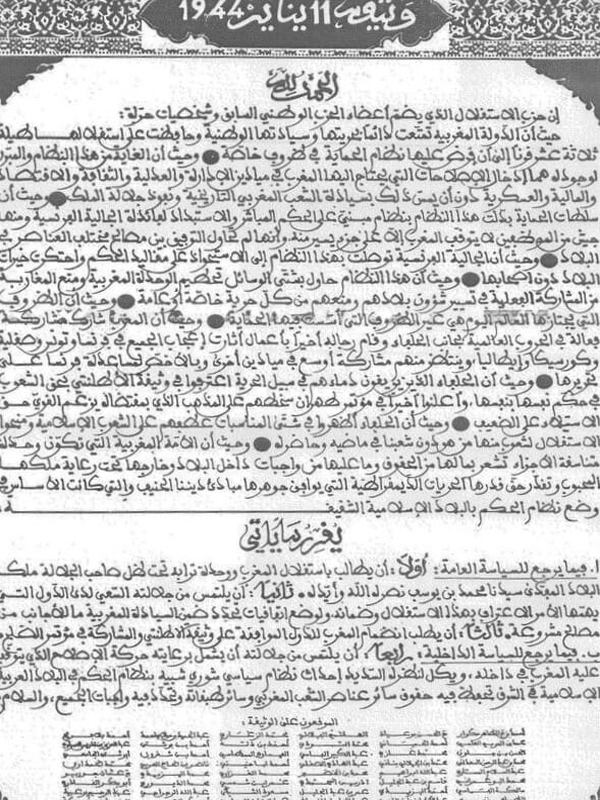 وثيقة 11 يناير 1944
الحمد لله
إن حزب الاستقلال الذي يضم أعضاء الحزب الوطني السابق وشخصيات حرة:
حيث أن الدولة المغربية تمتعت دائما بحريتها وسيادتها الوطنية وحافظت على استقلالها طيلة
ثلاثة عشر قرنا إلى أن فرض عليها نظام الحماية في ظروف خاصة ● وحيث أن الغاية من هذا النظام والمبرر
لوجوده هما إدخال الإصلاحات التي يحتاج إليها المغرب في ميادين الإدارة والعدلية والثقافة والاقتصاد
والمالية والعسكرية دون أن يمس ذلك بسيادة الشعب المغربي التاريخية ونفوذ جلالة الملك ● وحيث أن
سلطات الحماية بدلت هذا النظام بنظام مبني على الحكم المباشر والاستبداد لفائدة الجالية الفرنسية ومنها
جيش من الموظفين لا يتوقف المغرب إلا على جزء يسير منه وأنها لم تحاول التوفيق بين مصالح مختلف العناصر في
البلاد ● وحيث أن الجالية الفرنسية توصلت بهذا النظام إلى الاستحواذ على مقاليد الحكم واحتكرت خيرات
البلاد دون أصحابها ● وحيث أن هذا النظام حاول بشتى الوسائل تحطيم الوحدة المغربية ومنع المغاربة
من المشاركة الفعلية في تسيير شؤون بلادهم ومنعهم من كل حرية خاصة أو عامة ● وحيث أن الظروف
التي يجتازها العالم اليوم هي غير الظروف التي أسست فيها الحماية ● وحيث أن المغرب شارك مشاركة
فعالة في الحروب العالمية بجانب الحلفاء وقام رجاله أخيرا بأعمال أثارت إعجاب الجميع في فرنسا وتونس وصقلية
وكورسيكا وإيطاليا، وينتظر منهم مشاركة أوسع في ميادين أخرى وبالأخص لمساعدة فرنسا على
تحريرها ● وحيث أن الحلفاء الذين يريقون دماءهم في سبيل الحرية اعترفوا في وثيقة الأطلنتي بحق الشعوب
في حكم نفسها بنفسها، وأعلنوا أخيرا في مؤتمر طهران سخطهم على المذهب الذي بمقتضاه يزعم القوي حق
الاستيلاء على الضعيف ● وحيث أن الحلفاء أظهروا في شتى المناسبات عطفهم على الشعوب الإسلامية ومنحوا
الاستقلال لشعوب منها من هو دون شعبنا في ماضيه وحاضره ● وحيث أن الأمة المغربية التي تكون وحدة
متناسقة الأجزاء تشعر بما لها من الحقوق وما عليها من واجبات داخل البلاد وخارجها تحت رعاية ملكها
المحبوب وتقدر حق قدرها الحريات الديمقراطية التي يوافق جوهرها مبادئ ديننا الحنيف والتي كانت الأساس في
وضع نظام الحكم بالبلاد الإسلامية الشقيقة
يقرر ما يأتي
ا. فيما يرجع للسياسة العامة: أولا: أن يطالب باستقلال المغرب ووحدة ترابه تحت ظل صاحب الجلالة ملك
البلاد المفدى سيدنا محمد بن يوسف نصره الله وأيده. ثانيا: أن يلتمس من جلالته السعي لدى الدول التي
يهمها الأمر الاعتراف بهذا الاستقلال وضمانه ولوضع اتفاقيات تحدد ضمن السيادة المغربية ما للأجانب من
مصالح مشروعة. ثالثا: أن يطلب انضمام المغرب للدول الموافقة على وثيقة الأطلنتي والمشاركة في مؤتمر الصلح
ب. فيما يرجع للسياسة الداخلية: رابعا: أن يلتمس من جلالته أن يشمل برعايته حركة الإصلاح الذي يتوقف
عليه المغرب في داخله، ويكل لنظره السديد إحداث نظام سياسي شوري شبيه بنظام الحكم في البلاد العربية
الإسلامية في الشرق تحفظ فيه حقوق سائر عناصر الشعب المغربي وسائر طبقاته وتحدد فيه واجبات الجميع، والسلام
الموقعون على الوثيقة: